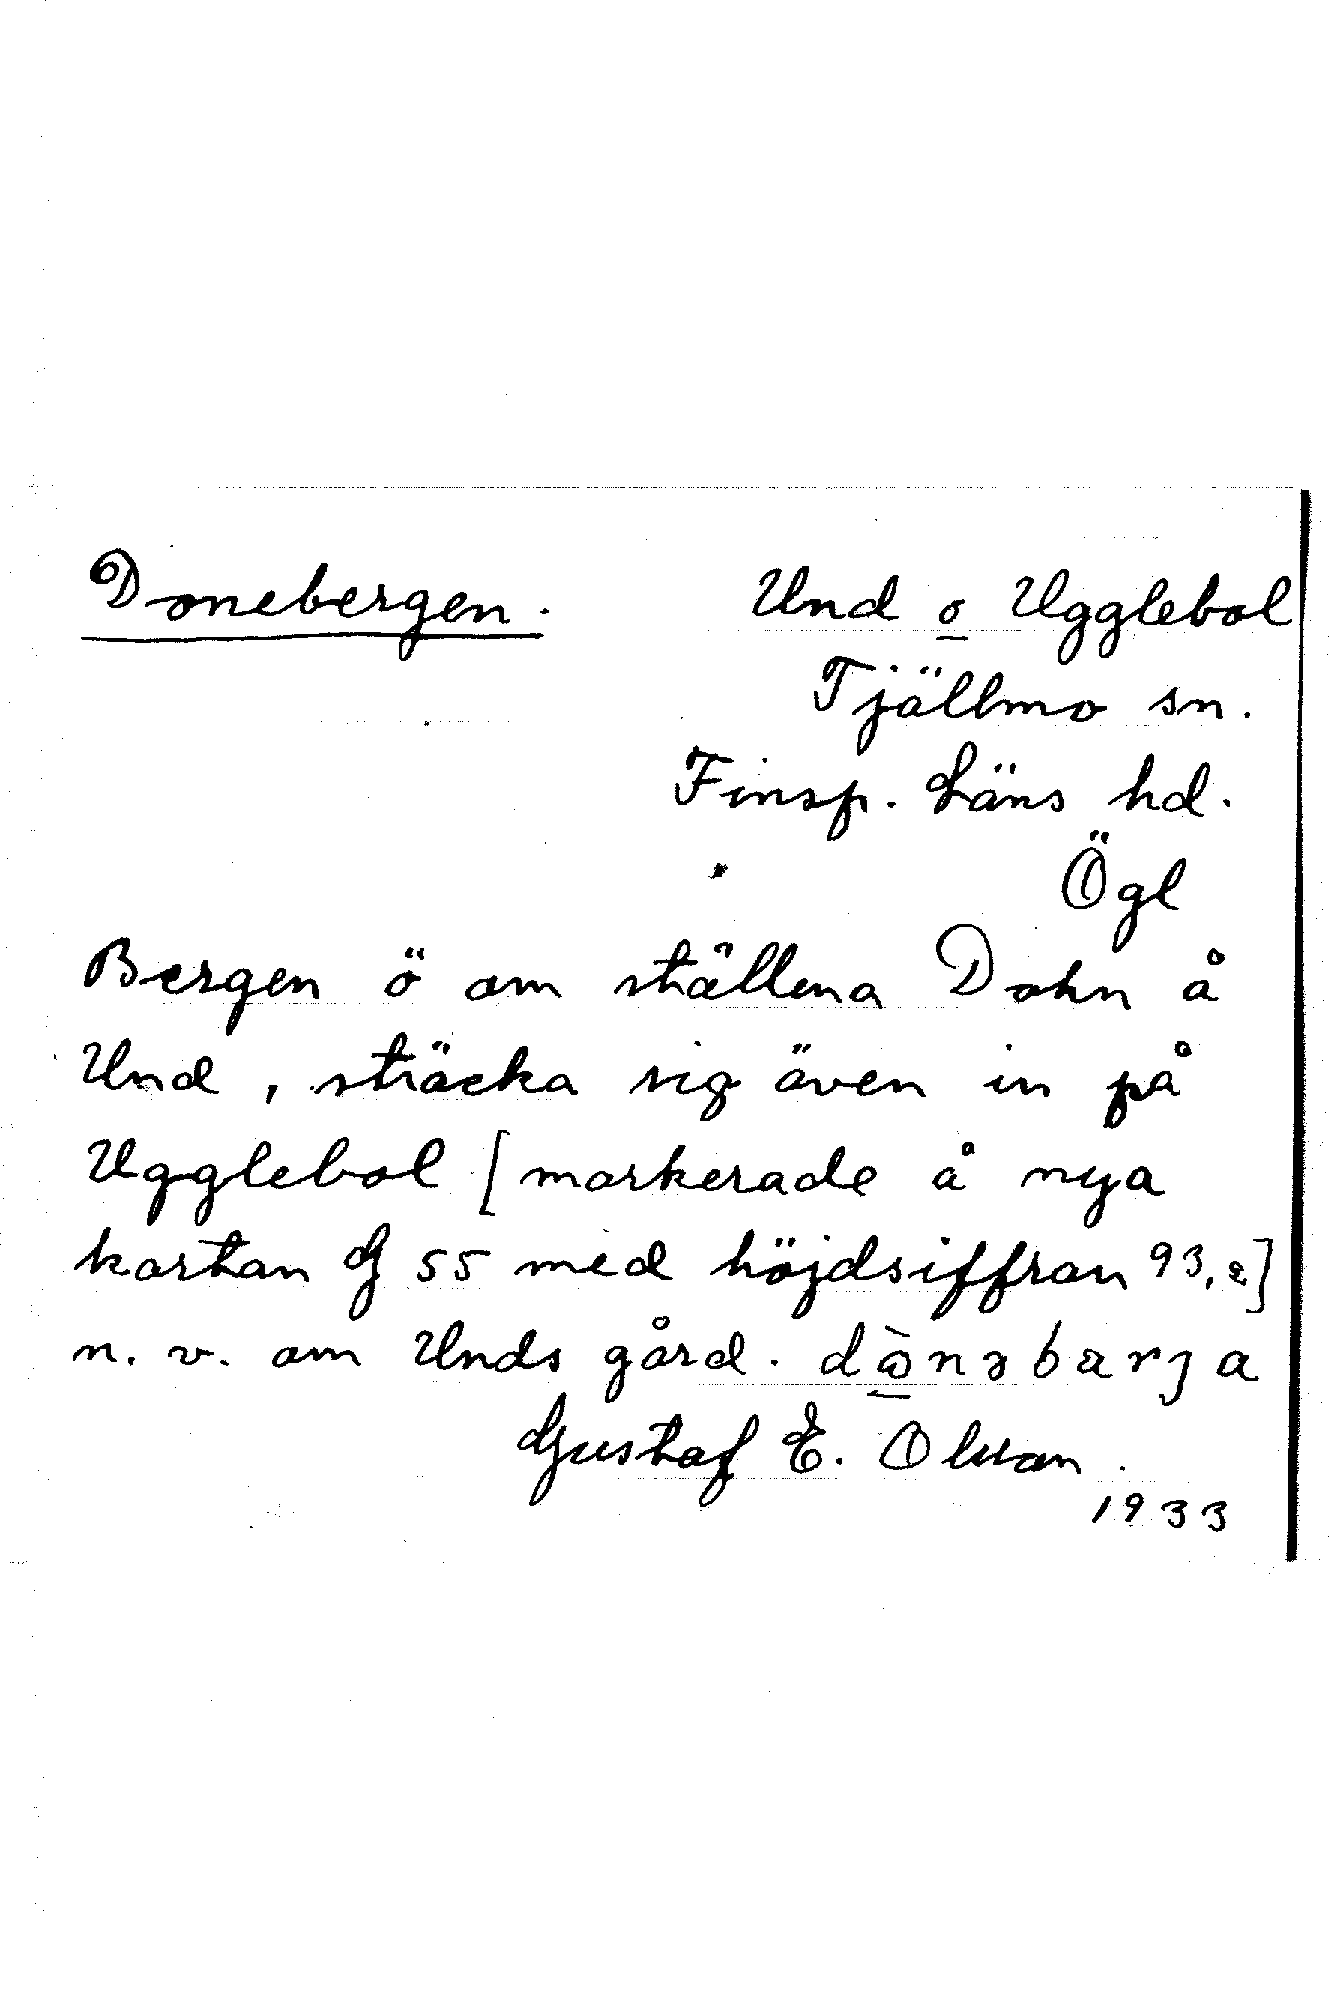 Donebergen.
Und o Ugglebol
Tjällmo sn.
Finsp. Läns hd.
Ögl
Bergen ö om ställena Dohn å
Und, sträcka sig även in på
Ugglebol [markerade å nya
kartan G 55 med höjdsiffran 93,2]
n. v. om Unds gård.
Gustaf E. Olsson.
1933